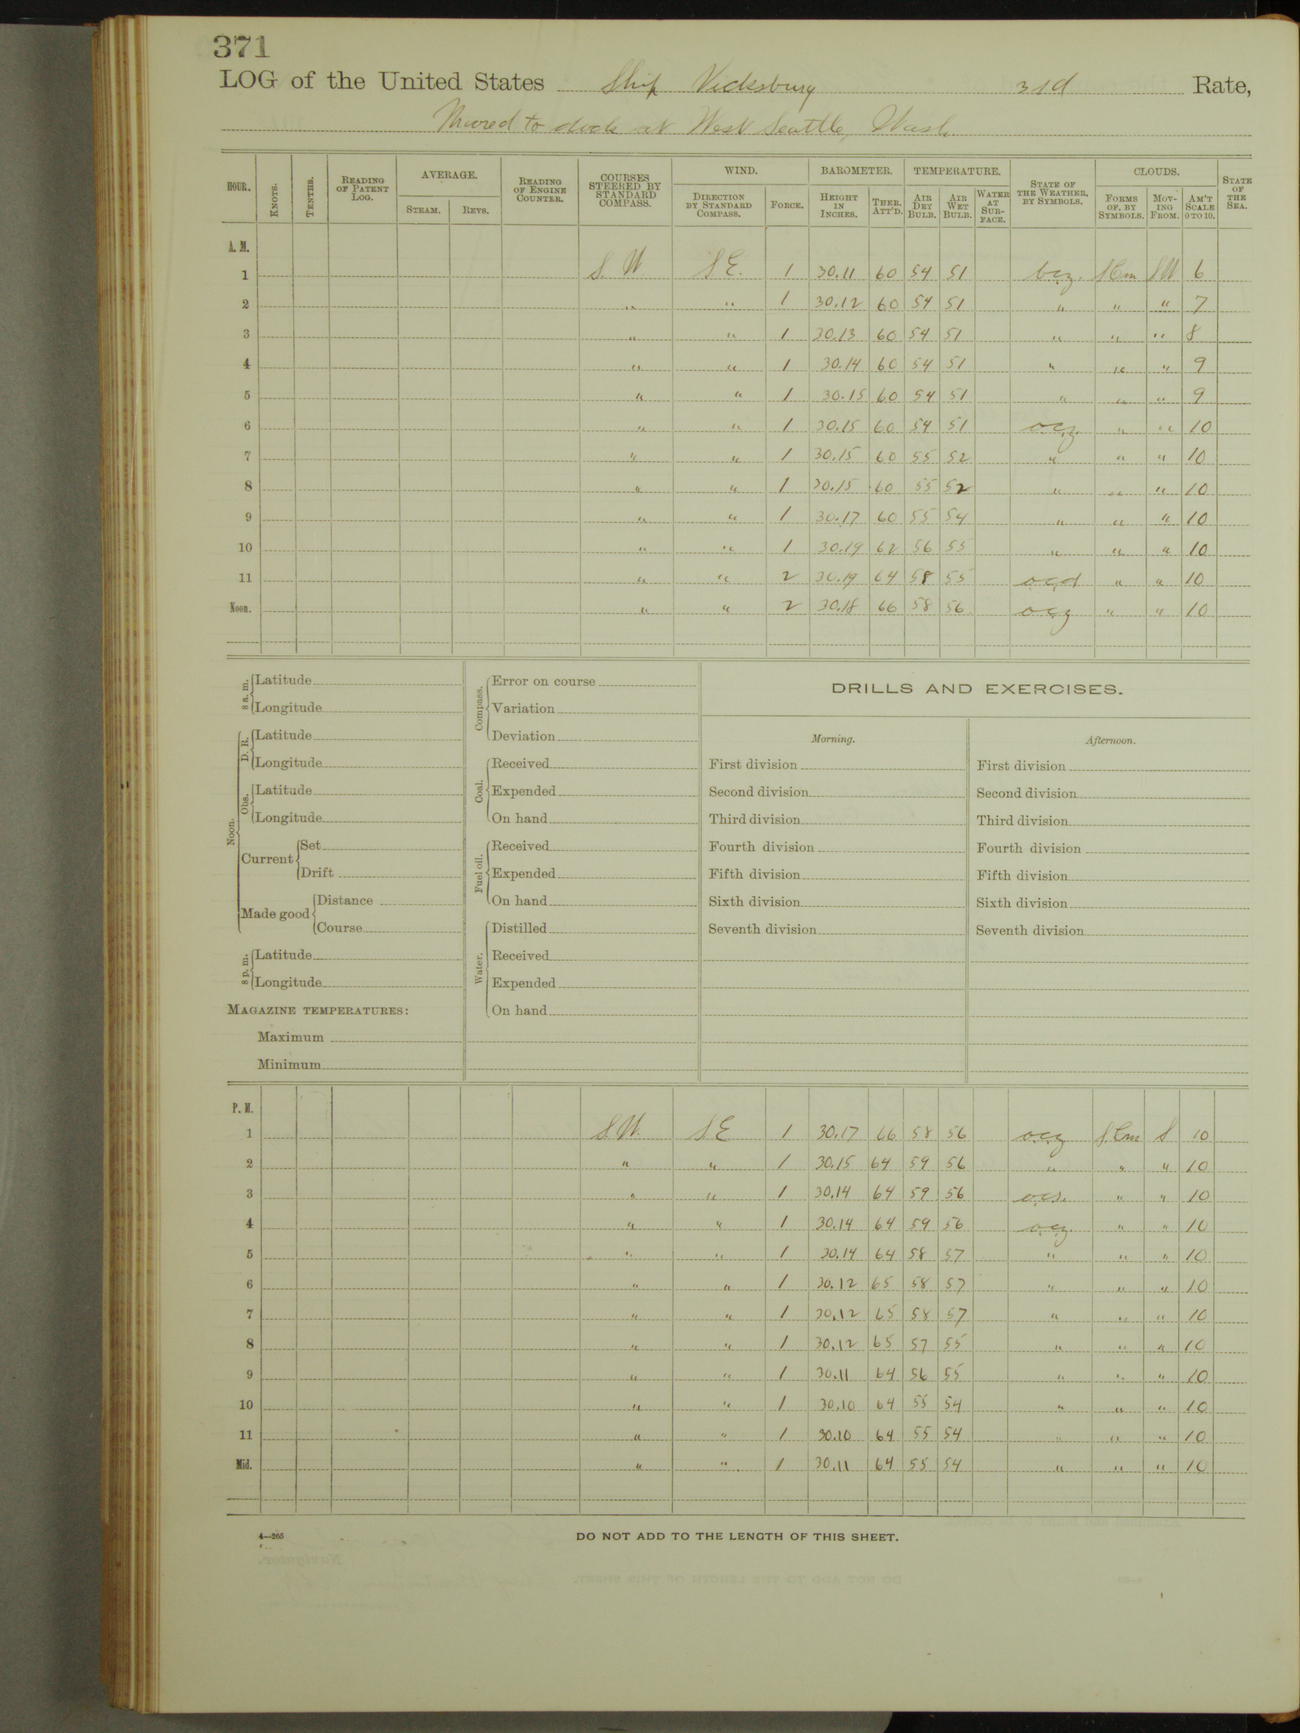 371
LOG of the United States Ship Vicksburg 3rd Rate,
Moored to dock at West Seattle, Wash.
HOUR. KNOTS. TENTHS. READING OF PATENT LOG. AVERAGE. STEAM. REVS. READING OF ENGINE COUNTER. COURSES STEERED BY STANDARD COMPASS. WIND. DIRECTION BY STANDARD COMPASS. FORCE. BAROMETER. HEIGHT IN INCHES. THER. ATT'D. TEMPERATURE. AIR DRY BULB. AIR WET BULB. WATER AT SURFACE. STATE OF THE WEATHER, BY SYMBOLS. CLOUDS. FORMS OF, BY SYMBOLS. MOVING FROM. AM'T SCALE 0 TO 10. STATE OF THE SEA.
A. M.
1 S. W. S E. 1 30.11 60 54 51 bcz. SCum SW 6
2 " " 1 30.12 60 54 51 " " " 7
3 " " 1 30.13 60 54 51 " " " 8
4 " " 1 30.14 60 54 51 " " " 9
5 " " 1 30.15 60 54 51 " " " 9
6 " " 1 30.15 60 54 51 ocz. " " 10
7 " " 1 30.15 60 55 52 " " " 10
8 " " 1 30.15 60 55 52 " " " 10
9 " " 1 30.17 60 55 54 " " " 10
10 " " 1 30.19 62 56 55 " " " 10
11 " " 2 30.19 64 58 55 ocd " " 10
Noon. " " 2 30.18 66 58 56 ocz " " 10
8 a. m. Latitude
Longitude
Noon. D. R. Latitude
Longitude
Obs. Latitude
Longitude
Current Set
Drift
Made good Distance
Course
8 p. m. Latitude
Longitude
MAGAZINE TEMPERATURES:
Maximum
Minimum
Compass. Error on course
Variation
Deviation
Coal. Received
Expended
On hand
Fuel oil. Received
Expended
On hand
Water. Distilled
Received
Expended
On hand
DRILLS AND EXERCISES.
Morning.
First division
Second division
Third division
Fourth division
Fifth division
Sixth division
Seventh division
Afternoon.
First division
Second division
Third division
Fourth division
Fifth division
Sixth division
Seventh division
P. M.
1 S W. S E 1 30.17 66 58 56 ocz S.Cum S 10
2 " " 1 30.15 64 59 56 " " " 10
3 " " 1 30.14 64 59 56 ocs. " " 10
4 " " 1 30.14 64 59 56 ocz. " " 10
5 " " 1 30.14 64 58 57 " " " 10
6 " " 1 30.12 65 58 57 " " " 10
7 " " 1 30.12 65 58 57 " " " 10
8 " " 1 30.12 65 57 55 " " " 10
9 " " 1 30.11 64 56 55 " " " 10
10 " " 1 30.10 64 55 54 " " " 10
11 " " 1 30.10 64 55 54 " " " 10
Mid. " " 1 30.11 64 55 54 " " " 10
4—265
DO NOT ADD TO THE LENGTH OF THIS SHEET.